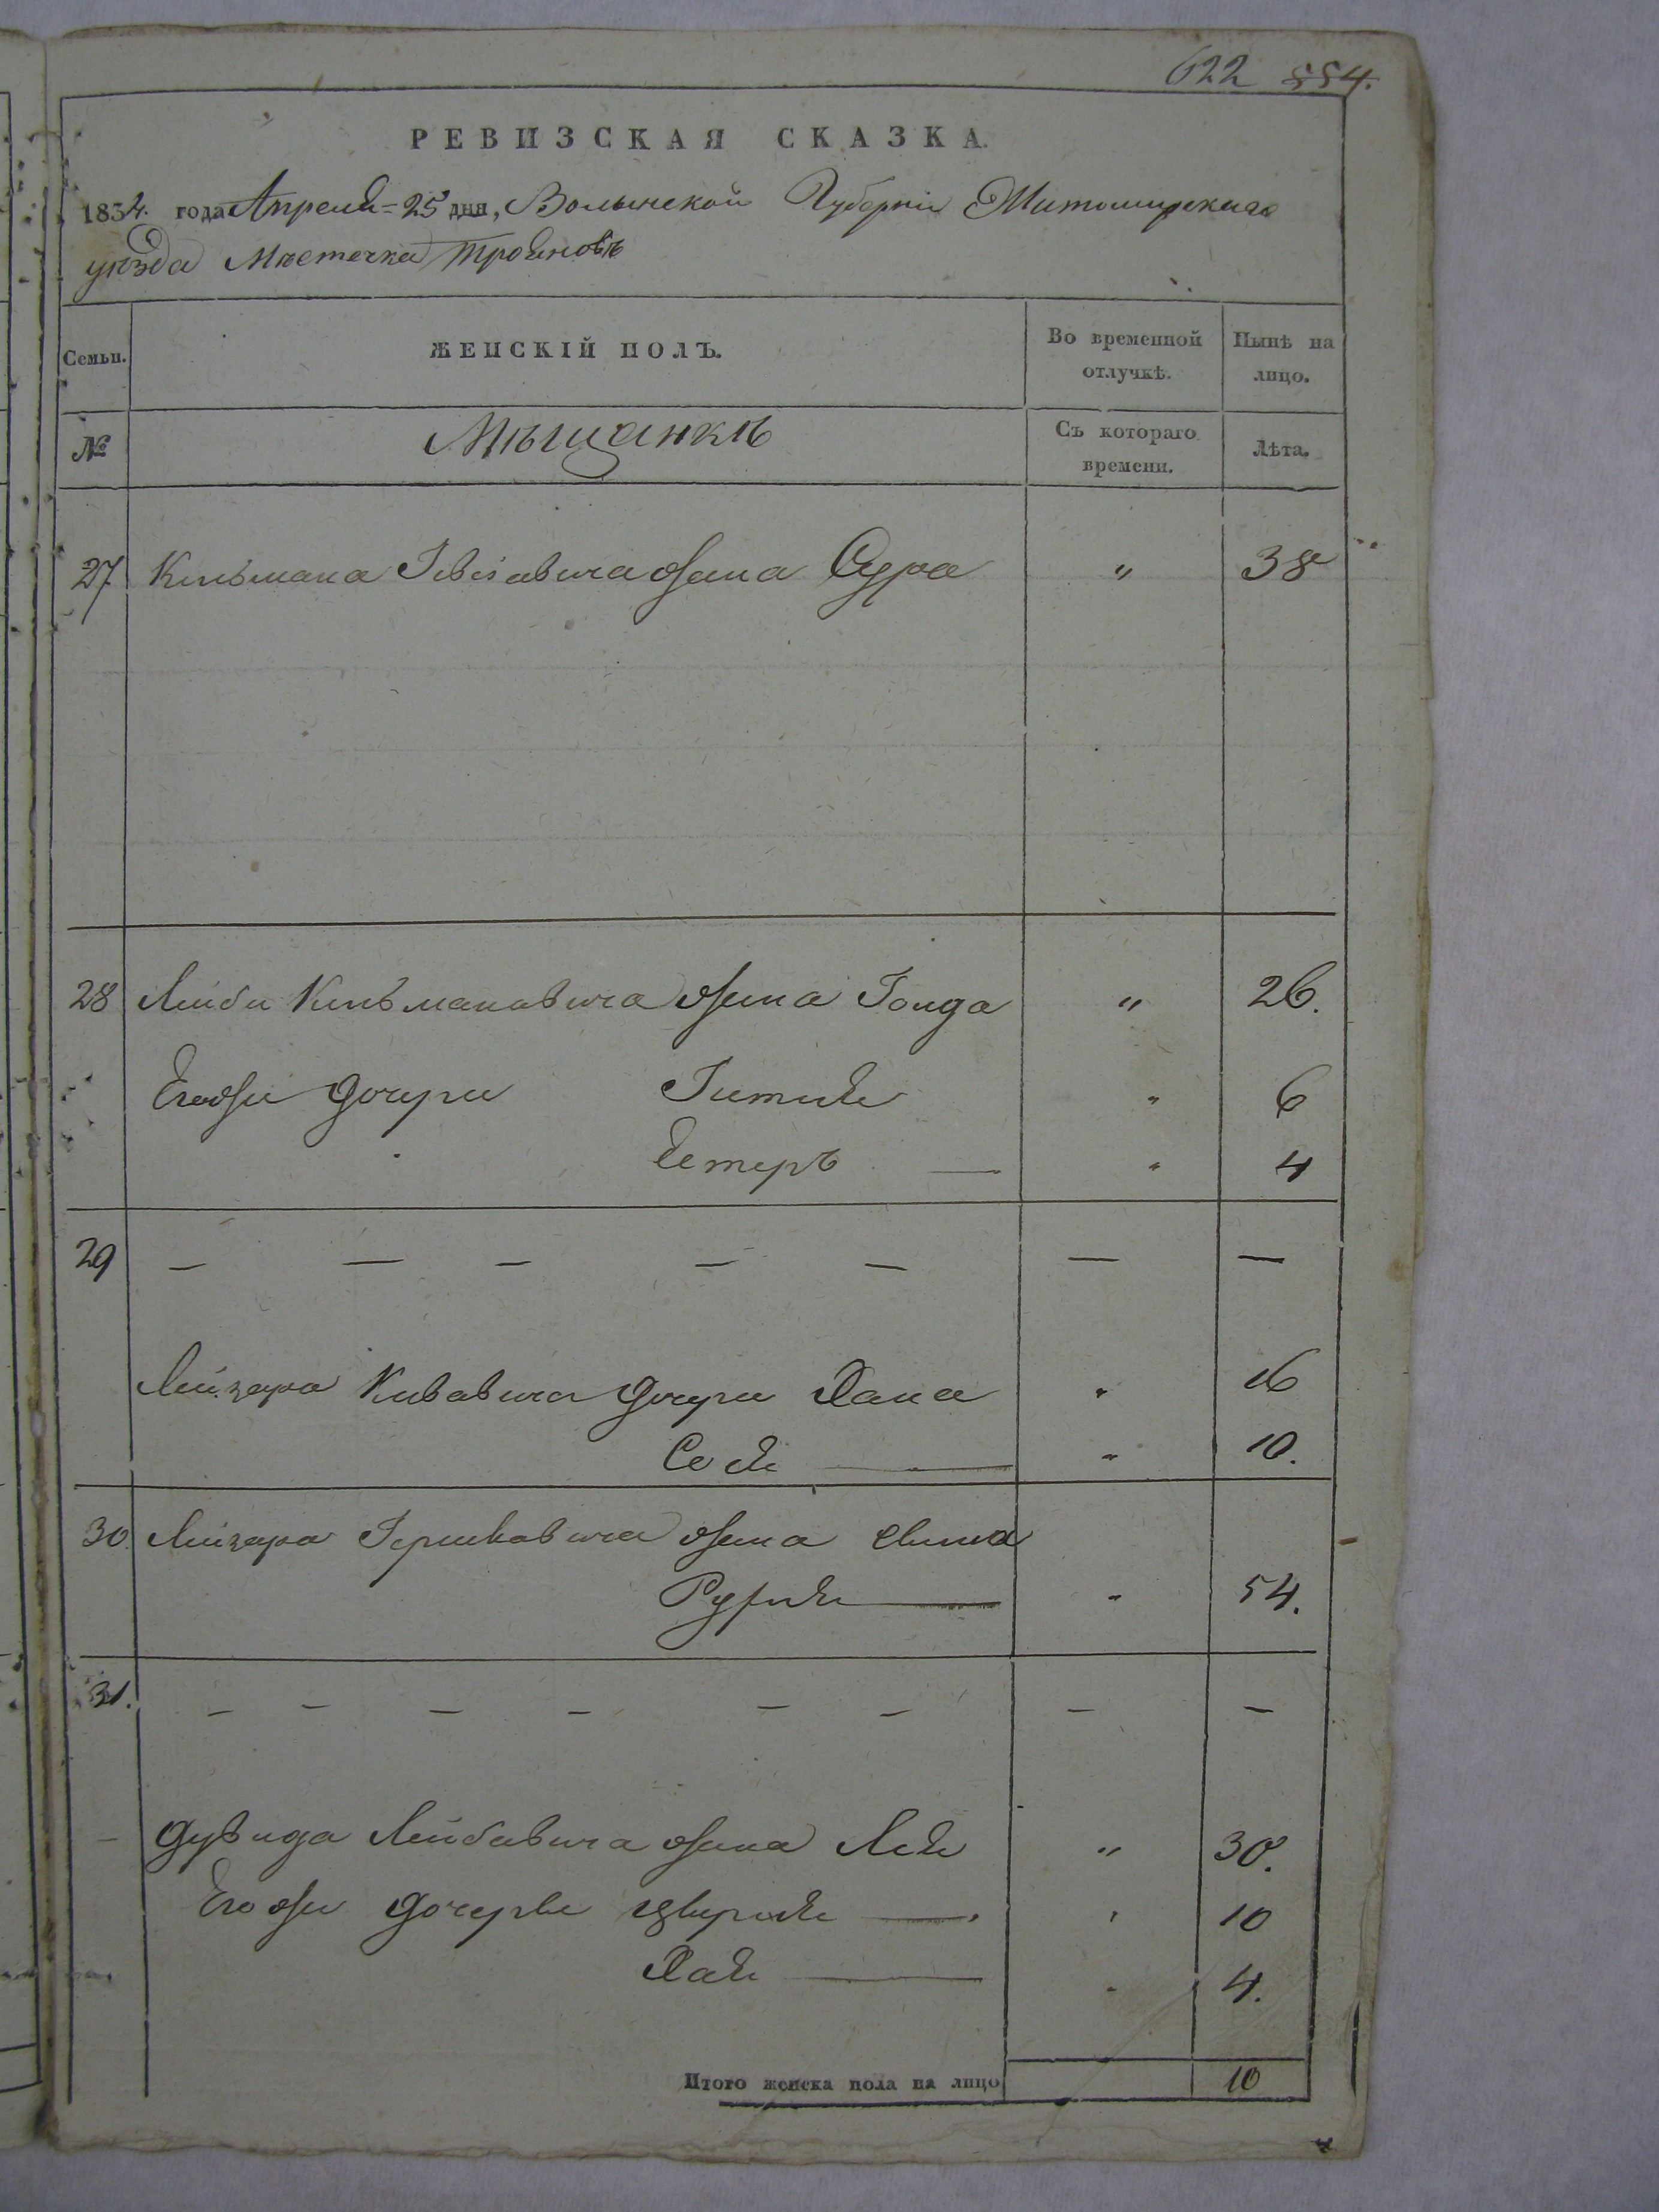 622 554.
РЕВИЗСКАЯ СКАЗКА.
1834. года Апреля 25 дня, Волынской Губерніи Житомирскаго
уѣзда Мѣстечка Трояновѣ
Семьи. ЖЕНСКІЙ ПОЛЪ. Во временной отлучкѣ. Нынѣ на лицо.
№ Мѣщанкѣ Съ котораго времени. Лѣта.
27 Кельмана жена Сура " 38
28 Лейби Кельмановича жена Голда " 26.
Егожъ дочери Гитля " 6
Естеръ — " 4
29 — — — — — — —
Лейзера Кивавича дочери Хана " 16
Сося — " 10.
30. Лейзера Гершковича жена
Рухля — " 54.
31. — — — — — — — —
Дувида Лейбавича жена Лея " 30.
Его же дочерѣ — " 10
Хая — " 4.
Итого женска пола на лицо 10